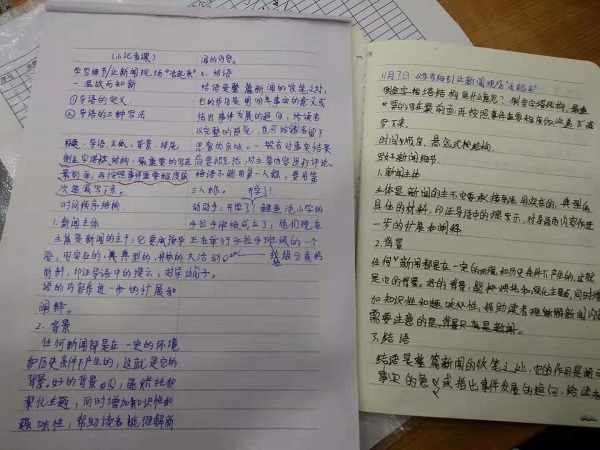 (小记者课)
学写细节/让新闻现场"活起来"
一 温故而知新
①导语的定义
②导语的三种写法
标题、导语、主体、背景、结语
倒金字塔结构,最重要的写在
最前面,再按照事件重要程度依
次递减写下来。
时间顺序结构
1.新闻主体
主体是新闻的主干,它要承接导
语,用实在的,典型的,具体的
材料,印证导语中的提示,对导
语的内容作进一步的扩展和
阐释。
2.背景
任何新闻都是在一定的环境
和历史条件下产生的,这就是它的
背景。好的背景,能烘托和
深化主题,同时增加知识性和
趣味性,帮助读者理解新
闻的内容。
3.结语
结语是整篇新闻的收笔之处,
它的作用是阐明事实的意义或
指出事件发展的趋向,给读者
以完整的感觉,也可给读者留下
思索的余地。一般在对事实结果
结语不能用第一人称,要用第
三人称。 开学了!
动动手:开学了!
手拉手班级成立了,他们现在
正在举行手拉手班级的一个
大活动
11月7日 《学写细节》让新闻现场"活起来"
倒金字塔结构是什么意思?倒金字塔结构,最重
要的写在最前面,再按照事件重要程度依次递减写
下来。
时间顺序、悬念式结构。
写好新闻细节
1.新闻主体
主体是新闻的主干,它要承接导语,用实在的,典型的,
具体的材料,印证导语中的提示,对导语的内容作进
一步的扩展和阐释
2.背景
任何新闻都是在一定的环境和历史条件下产生的,这就
是它的背景。好的背景,能烘托和深化主题,同时增
加知识性和趣味性,帮助读者理解新闻内容
需要注意的是,背景只有是新闻。
3.结语
结语是整篇新闻的收笔之处,它的作用是阐明
事实的意义或指出事件发展的趋向,给读者